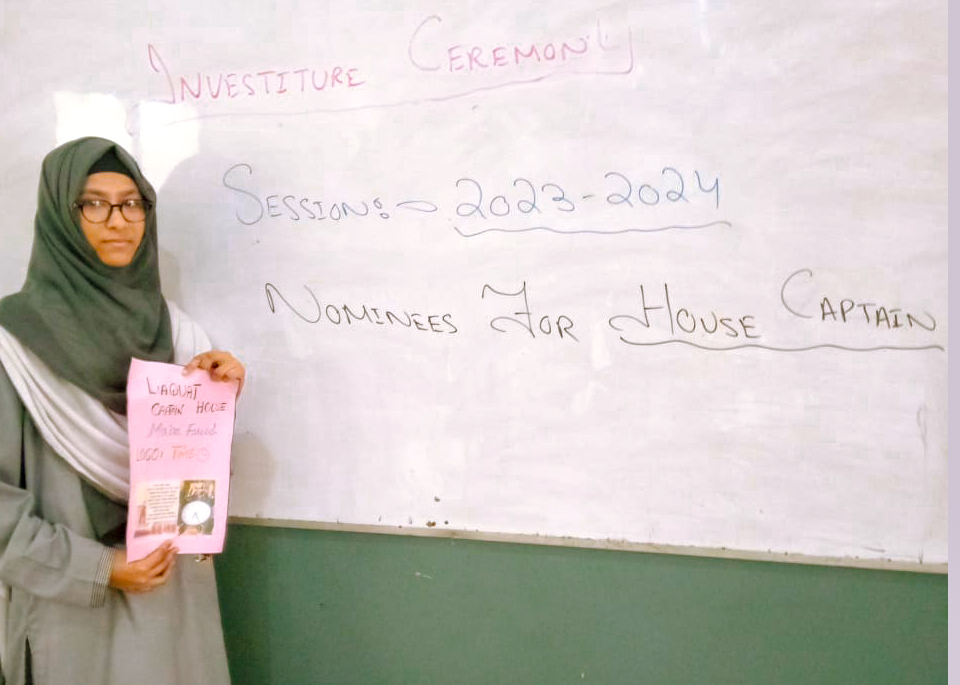 INVESTITURE CEREMONY
SESSION:- 2023-2024
NOMINEES FOR HOUSE CAPTAIN
LIAQUAT
CAPTAIN HOUSE
Maha
LOGO: